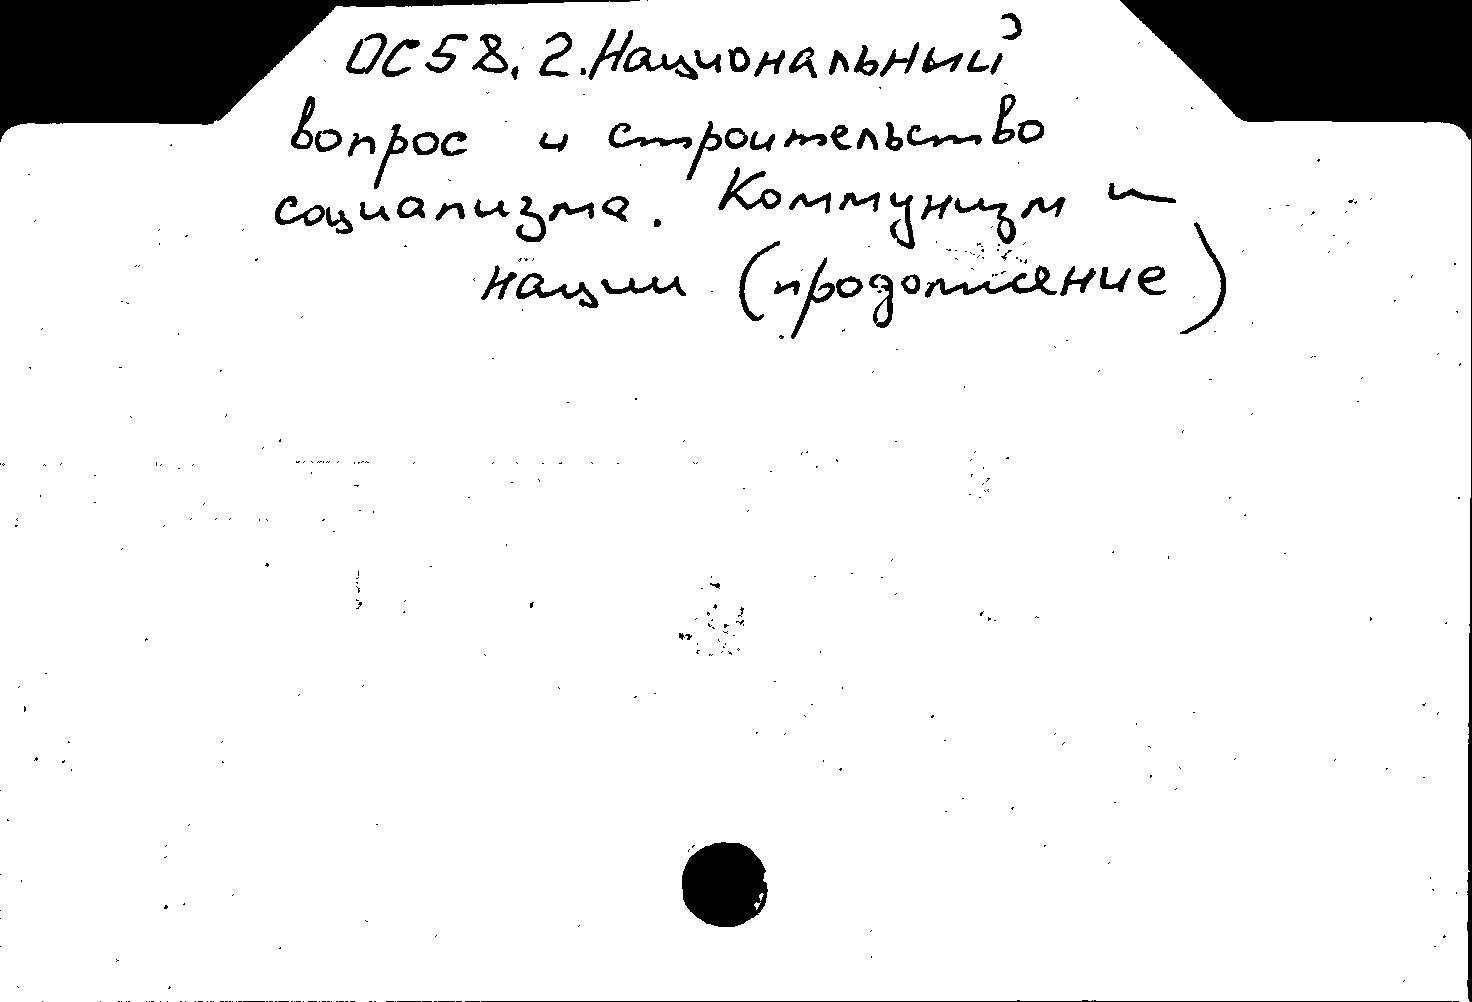 ОС58.2. Национальный
вопрос и строительство
социализма. Коммунизм и
нации (продолжение)